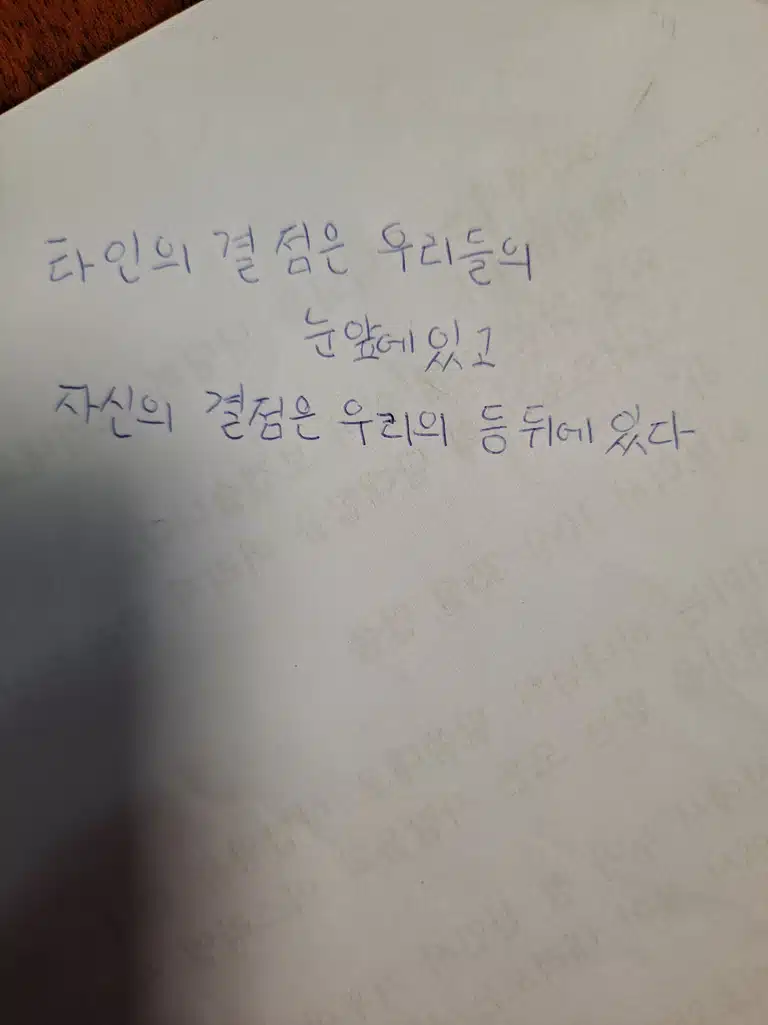 타인의 결점은 우리들의
눈앞에있고
자신의 결점은 우리의 등뒤에 있다